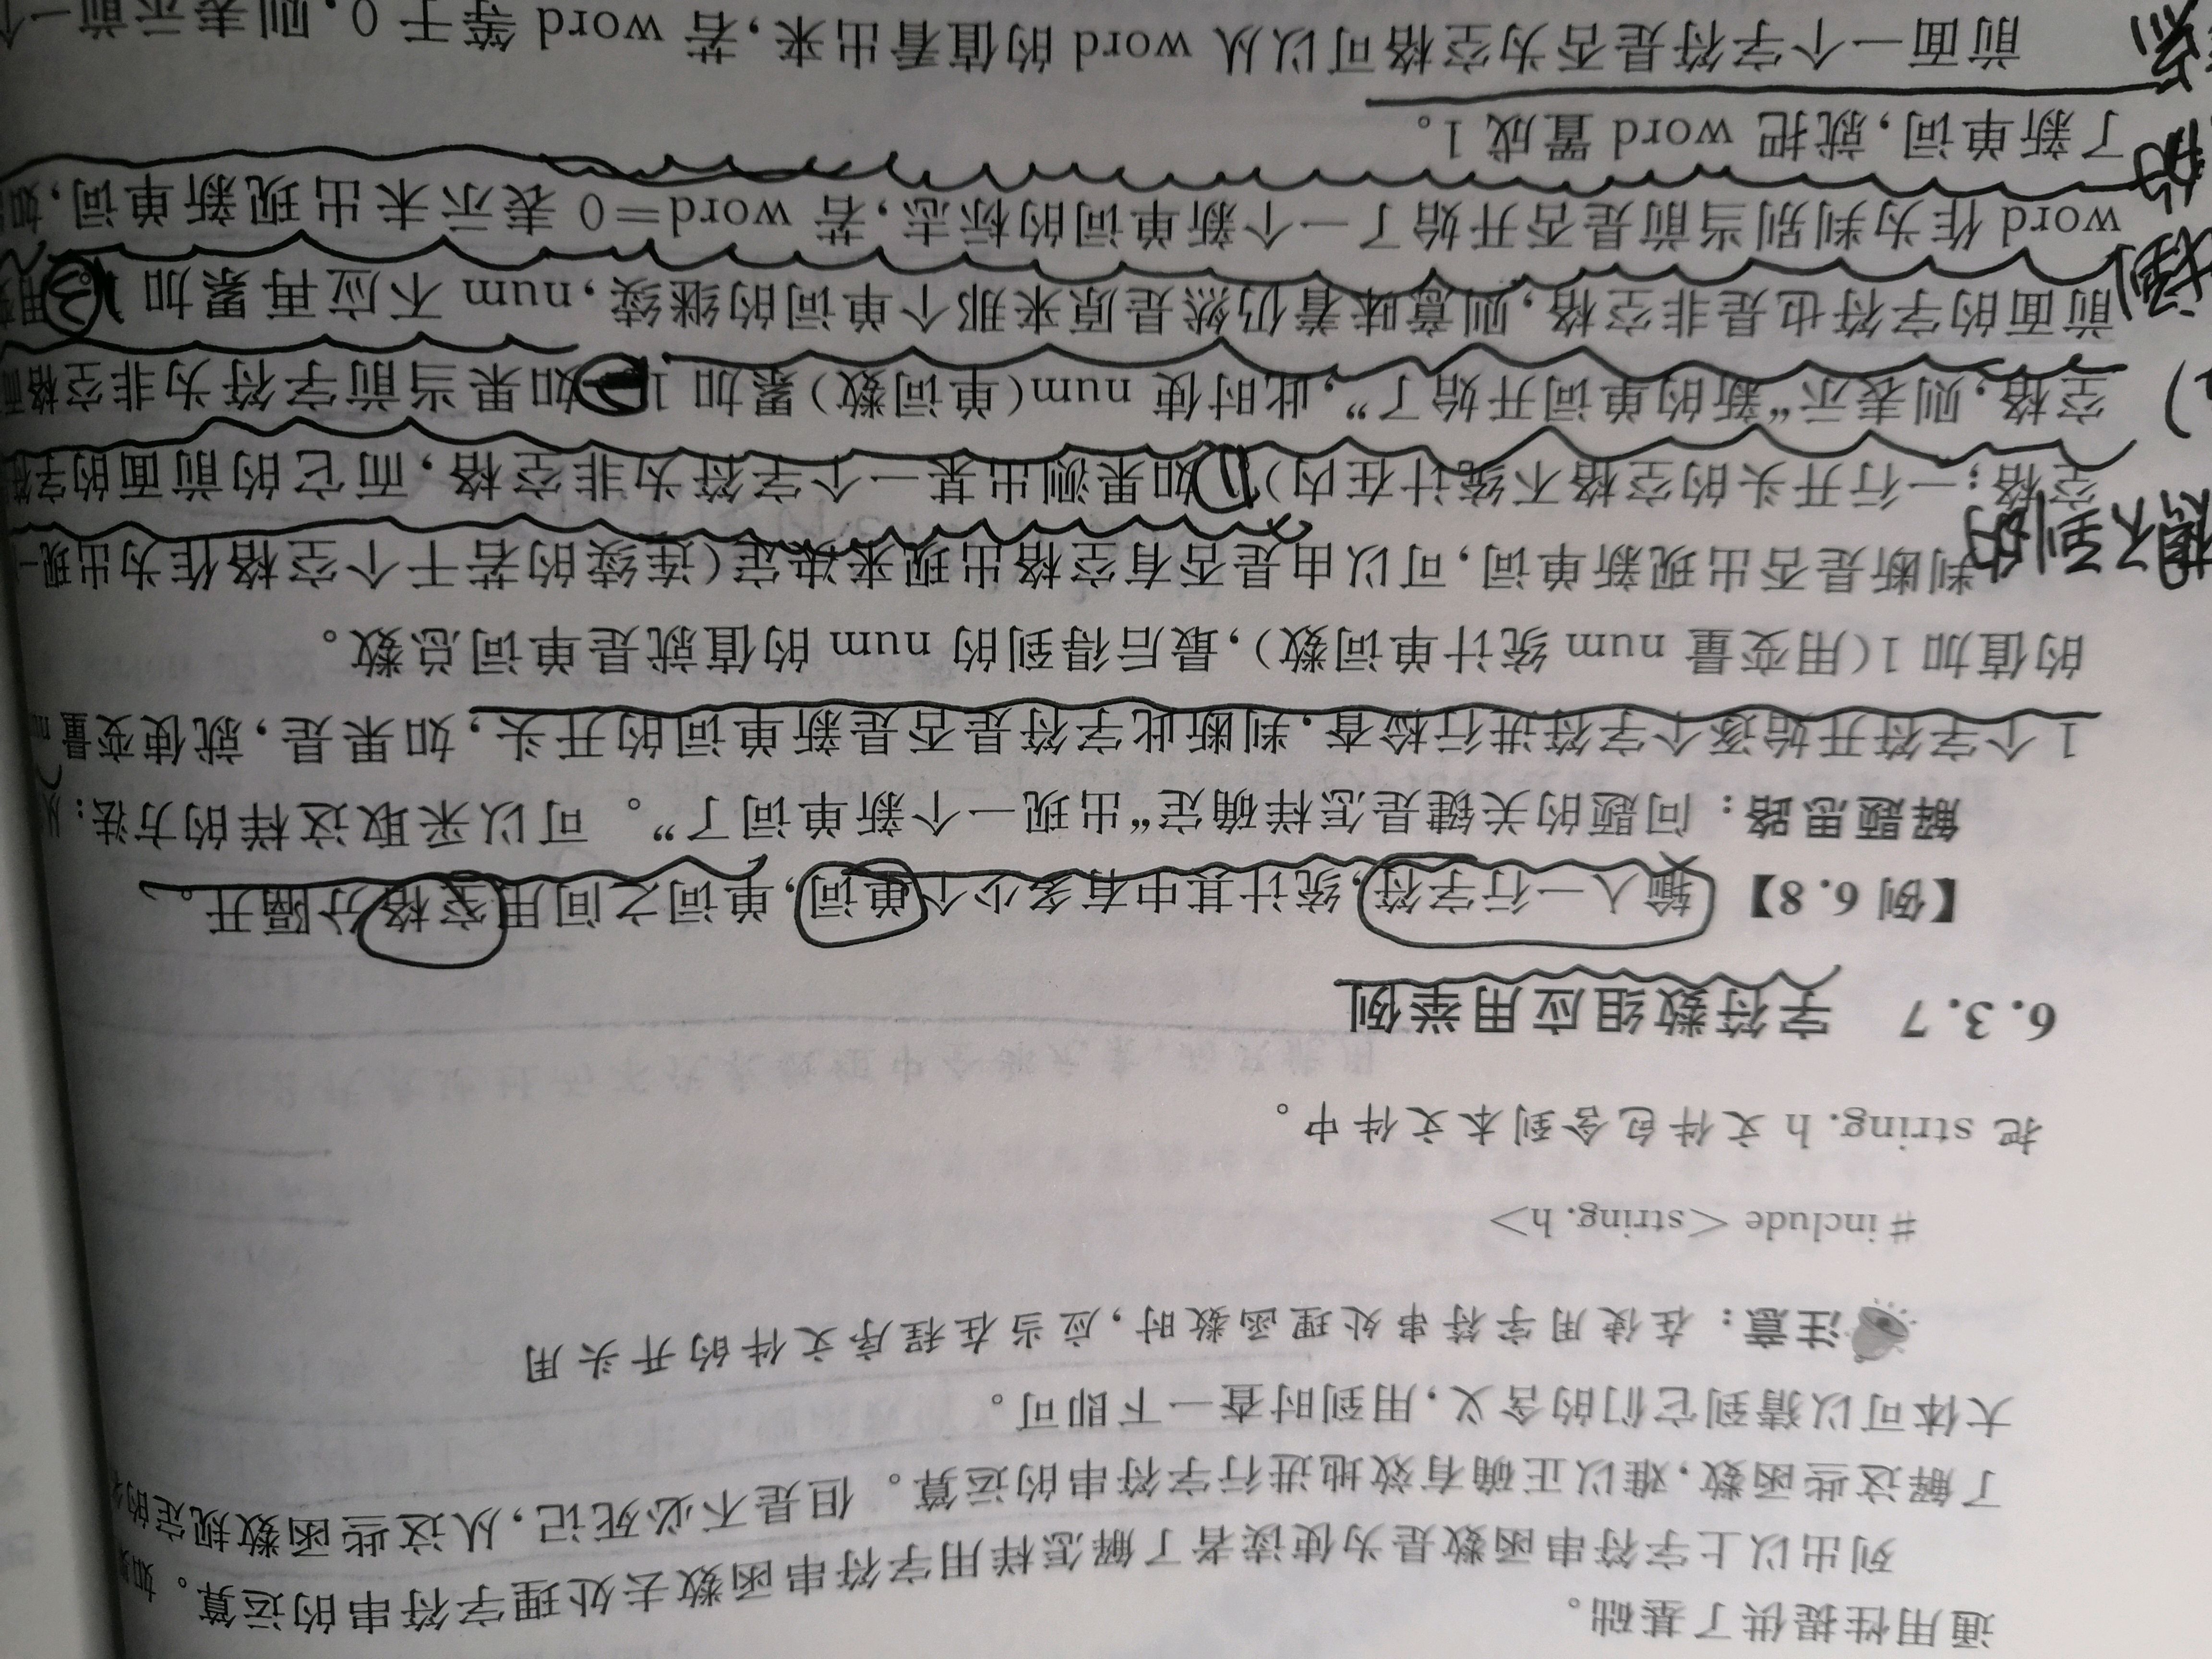 通用性提供了基础。
列出以上字符串函数是为使读者了解怎样用字符串函数去处理字符串的运算。如
了解这些函数,难以正确有效地进行字符串的运算。但是不必死记,从这些函数规定的
大体可以猜到它们的含义,用到时查一下即可。
注意:在使用字符串处理函数时,应当在程序文件的开头用
#include <string.h>
把 string.h 文件包含到本文件中。
6.3.7 字符数组应用举例
【例 6.8】 输入一行字符,统计其中有多少个单词,单词之间用空格分隔开。
解题思路:问题的关键是怎样确定“出现一个新单词了”。可以采取这样的方法:从
1 个字符开始逐个字符进行检查,判断此字符是否是新单词的开头,如果是,就使变量
的值加 1(用变量 num 统计单词数),最后得到的 num 的值就是单词总数。
想不到的
判断是否出现新单词,可以由是否有空格出现来决定(连续的若干个空格作为出现一
空格;一行开头的空格不统计在内)①如果测出某一个字符为非空格,而它的前面的字符
空格,则表示“新的单词开始了”,此时使 num(单词数)累加 1②如果当前字符为非空格而
前面的字符也是非空格,则意味着仍然是原来那个单词的继续,num 不应再累加 1③用变
word 作为判别当前是否开始了一个新单词的标志,若 word=0 表示未出现新单词,如
了新单词,就把 word 置成 1。
前面一个字符是否为空格可以从 word 的值看出来,若 word 等于 0,则表示前一个